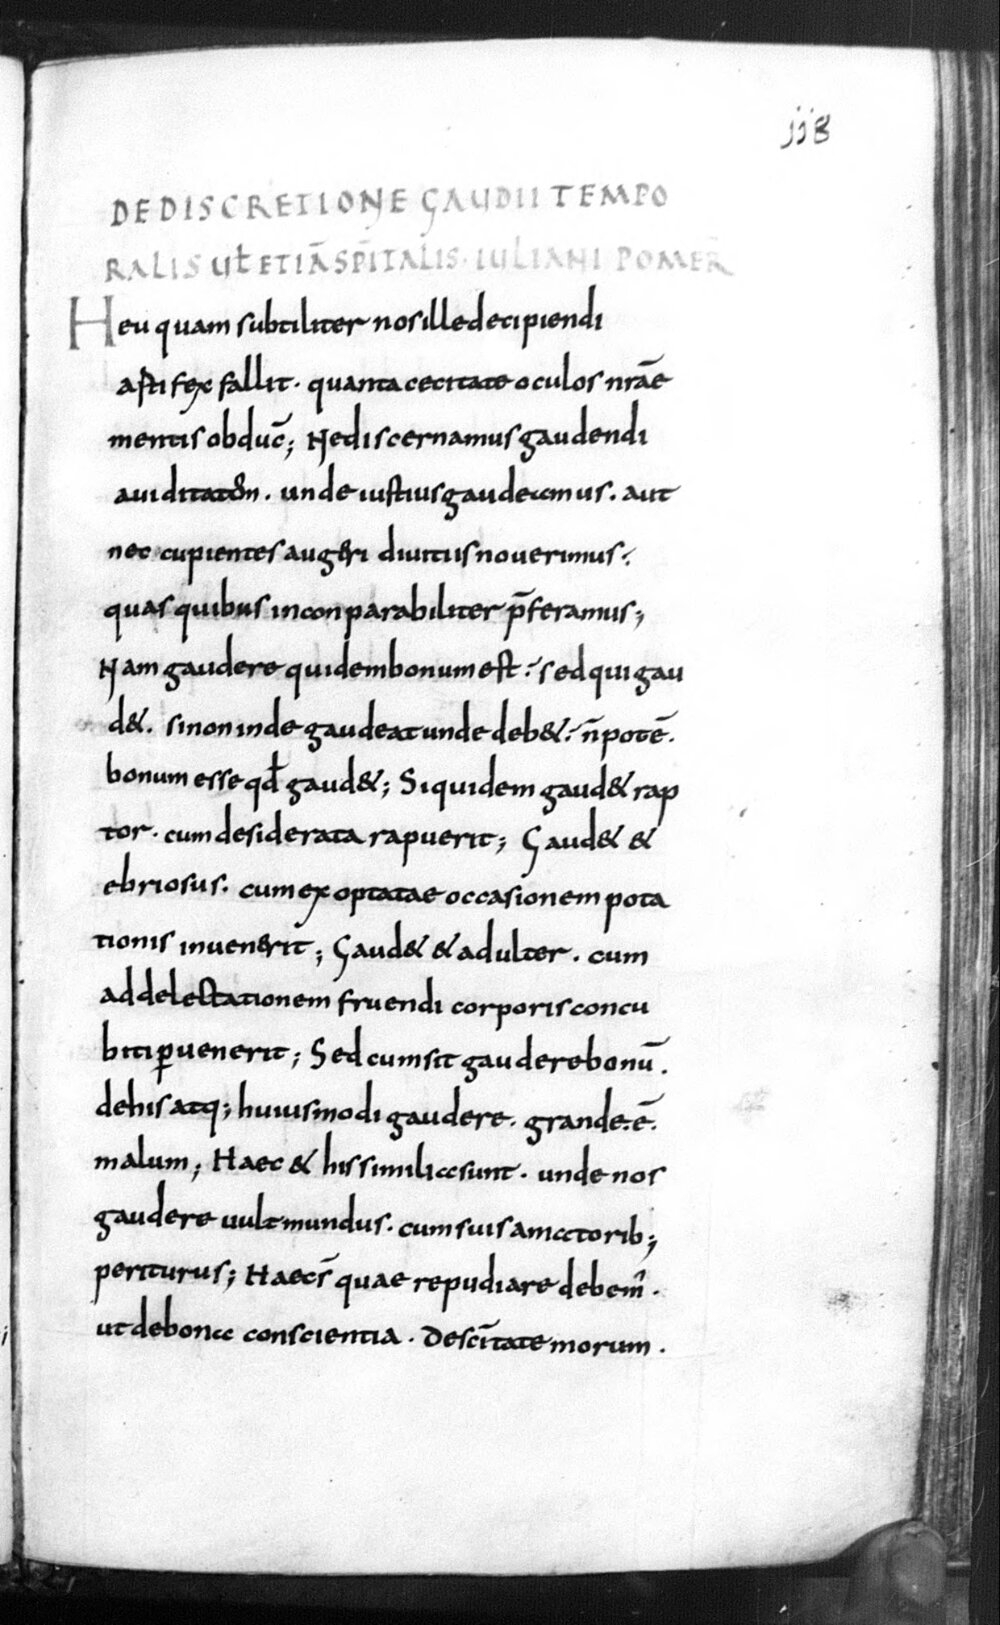 118
DE DISCRETIONE GAUDII TEMPO
RALIS Ul̄ ETIĀ SPĪTALIS · IULIANI POMER̄
Heu quam subtiliter nos ille decipiendi
astifex fallit · quanta cecitate oculos nrāe
mentis obduc̄; Ne discernamus gaudendi
auiditatem · unde iustius gaudeamus · aut
nec cupientes augeri diuitiis nouerimus ·
quas quibus inconparabiliter p̄feramus;
Nam gaudere quidem bonum est · sed qui gau
d& · si non inde gaudeat unde deb& · n̄ potē ·
bonum esse qd̄ gaud&; Siquidem gaud& rap
tor · cum desiderata rapuerit; Gaud& &
ebriosus · cum exoptatae occasionem pota
tionis inuenerit; Gaud& & adulter · cum
ad delectationem fruendi corporis concu
biti ꝑuenerit; Sed cum sit gaudere bonū ·
de his atq; huiusmodi gaudere · grande · ē ·
malum; Haec & his similia sunt · unde nos
gaudere uult mundus · cum suis amatorib;
periturus; Haec s̄ quae repudiare debem' ·
ut de bona conscientia · De sc̄itate morum ·